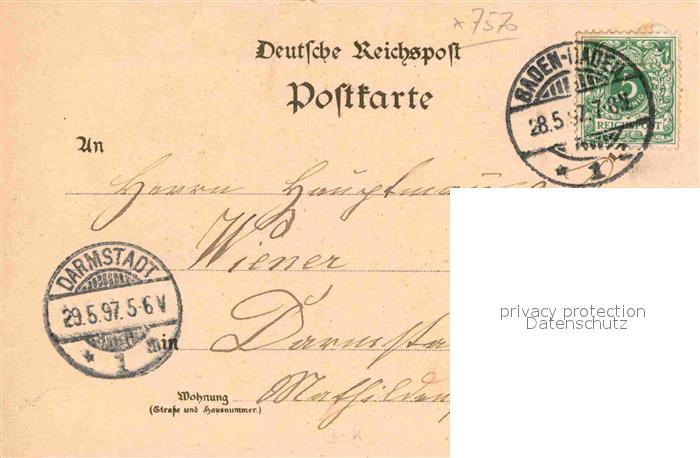 * 7570
Deutsche Reichspost
Postkarte
BADEN-BADEN
28.5.97. 7-8N.
* 1
5
REICHSPOST
An
Herrn Hauptmann
Wiener
DARMSTADT
29.5.97. 5-6V
* 1 *
in
Darmsta
Mathilden
Wohnung
(Straße und Hausnummer.)
privacy protection
Datenschutz